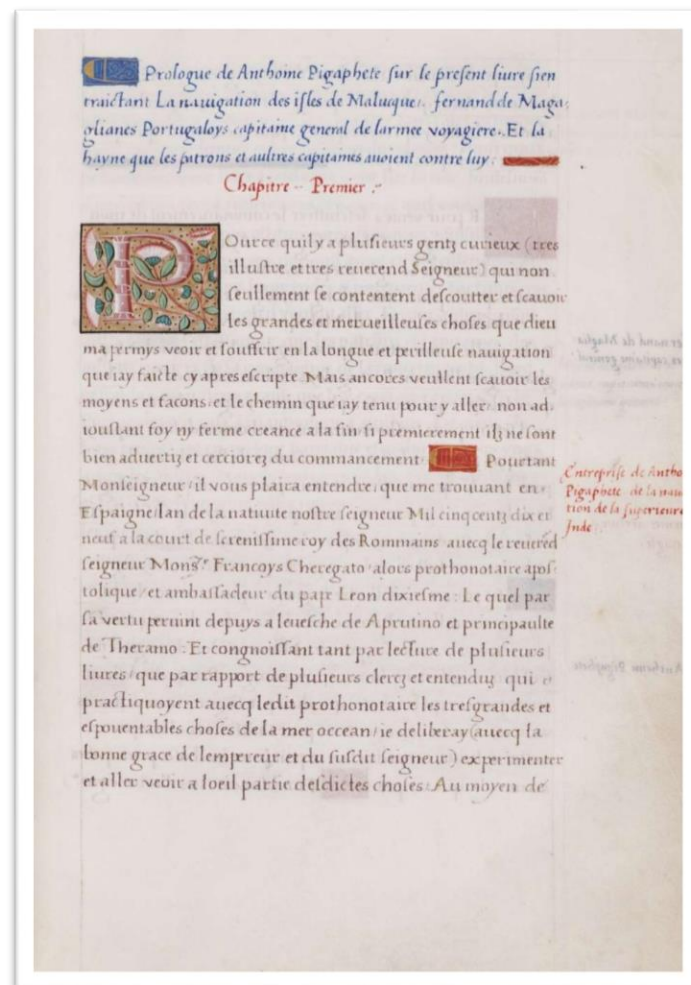 Prologue de Anthoine Pigaphete sur le present livre sien
traictant La navigation des isles de Malucque. fernand de Maga,
glianes Portugaloys capitaine general de larmee voyagiere. Et la
hayne que les patrons et aultres capitaines avoient contre luy.
Chapitre Premier.
Pource quil y a plusieurs gentz curieux (tres
illustre et tres reverend Seigneur) qui non
seullement se contentent descoutter et scavoir
les grandes et merveilleuses choses que dieu
ma permys veoir et souffrir en la longue et perilleuse navigation
que iay faicte cy apres escripte. Mais ancores veullent scavoir les
moyens et facons, et le chemin que iay tenu pour y aller, non ad,
ioustant foy ny ferme creance a la fin si premierement ilz ne sont
bien advertiz et cerciorez du commancement. Pourtant
Monseigneur, il vous plaira entendre, que me trouvant en,
Espaigne lan de la nativite nostre seigneur Mil cinq centz dix et
neuf a la court de serenissime roy des Rommains avecq le reverēd
seigneur Monsr. Francoys Cheregato, alors prothonotaire apos,
tolique, et ambassadeur du pape Leon dixiesme: Le quel par
sa vertu pervint depuys a levesche de Aprutino et principaulte
de Theramo. Et congnoissant tant par lecture de plusieurs
livres, que par rapport de plusieurs clercz et entenduz qui
practiquoyent avecq ledit prothonotaire les tresgrandes et
espouentables choses de la mer occean, ie deliberay (avecq la
bonne grace de lempereur et du susdit seigneur) experimenter
et aller veoir a loeil partie desdictes choses. Au moyen de
Entreprise de Antho
Pigaphete de la navi
tion de la superieure
Inde.